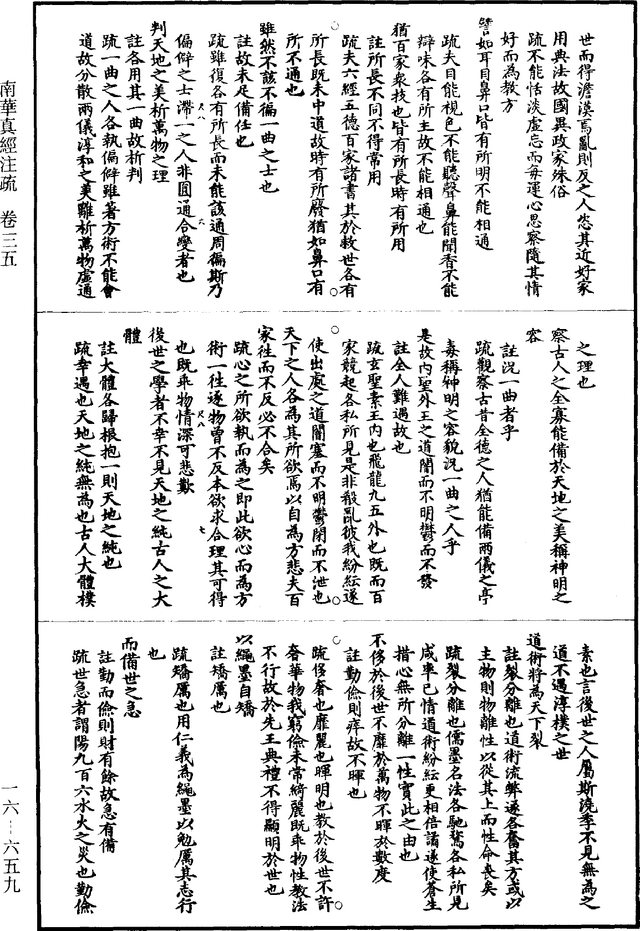 世而得澹漠焉亂則反之人恣其近好家
用典法故國異政家殊俗
疏不能恬淡虛忘而每運心思察隨其情
好而為教方
譬如耳目鼻口皆有所明不能相通
疏夫目能視色不能聽聲鼻能聞香不能
辯味各有所主故不能相通也
猶百家衆技也皆有所長時有所用
註所長不同不得常用
疏夫六經五德百家諸書其於救世各有
所長既未中道故時有所廢猶如鼻口有
所不通也
雖然不該不徧一曲之士也
註故未足備任也
疏雖復各有所長而未能該通周徧斯乃
偏僻之士滯一之人非圓通合變者也
判天地之美析萬物之理
註各用其一曲故析判
疏一曲之人各執偏僻雖著方術不能會
道故分散兩儀淳和之美離析萬物虛通
之理也
察古人之全寡能備於天地之美稱神明之
容
註況一曲者乎
疏觀察古昔全德之人猶能備兩儀之亭
毒稱神明之容貌況一曲之人乎
是故內聖外王之道闇而不明鬱而不發
註全人難遇故也
疏玄聖素王內也飛龍九五外也既而百
家競起各私所見是非殽亂彼我紛紜遂
使出處之道闇塞而不明鬱閉而不泄也
天下之人各為其所欲焉以自為方悲夫百
家往而不反必不合矣
疏心之所欲執而為之即此欲心而為方
術一往逐物曾不反本欲求合理其可得
也既乖物情深可悲歎
後世之學者不幸不見天地之純古人之大
體
註大體各歸根抱一則天地之純也
疏幸遇也天地之純無為也古人大體樸
素也言後世之人屬斯澆季不見無為之
道不遇淳樸之世
道術將為天下裂
註裂分離也道術流弊遂各奮其方或以
主物則物離性以從其上而性命喪矣
疏裂分離也儒墨名法各馳騖各私所見
咸率己情道術紛紜更相倍譎遂使蒼生
措心無所分離一性實此之由也
不侈於後世不靡於萬物不暉於數度
註勤儉則瘁故不暉也
疏侈奢也靡麗也暉明也教於後世不許
奢華物我窮儉未常綺麗既乖物性教法
不行故於先王典禮不得顯明於世也
以繩墨自矯
註矯厲也
疏矯厲也用仁義為繩墨以勉厲其志行
也
而備世之急
註勤而儉則財有餘故急有備
疏世急者謂陽九百六水火之災也勤儉
南華真經注疏 卷三五
一六—六五九